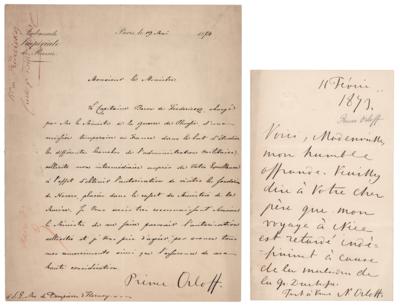 Ambassade
Impériale
de Russie
Paris le 19 Mai 1874
Monsieur le Ministre,
Le Capitaine Baron de Fredericks, chargé
par le Ministre de la guerre de Russie d'une
mission temporaire en France dans le but d'étudier
les différentes branches de l'administration militaire,
sollicite mon intermédiaire auprès de Votre Excellence
à l'effet d'obtenir l'autorisation de visiter la fonderie
de placée dans le ressort du Ministère de la
Marine. Je
le Ministre de me faire parvenir l'autorisation
sollicitée et je Vous prie d'agréer par avance tous
mes remerciements ainsi que l'assurance de ma
haute considération.
Prince Orloff
11 Févr.
1873.
Prince Orloff
Voici, Mademoiselle,
mon humble
offrande. Veuillez
dire à Votre cher
père que mon
voyage à Nice
est retardé
à cause
de la maladie de
la gr. Duchesse
Tout à Vous N. Orloff.